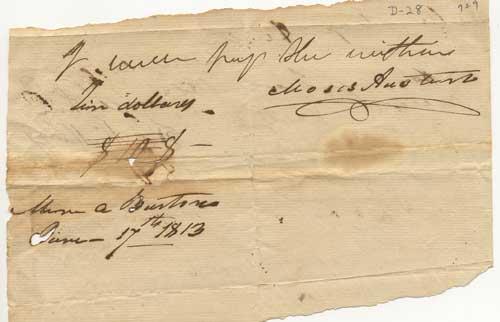 D-28 729
I will pay the within
Ten dollars
Moses Austin
$10$
Mine a Burton
June 17th 1813